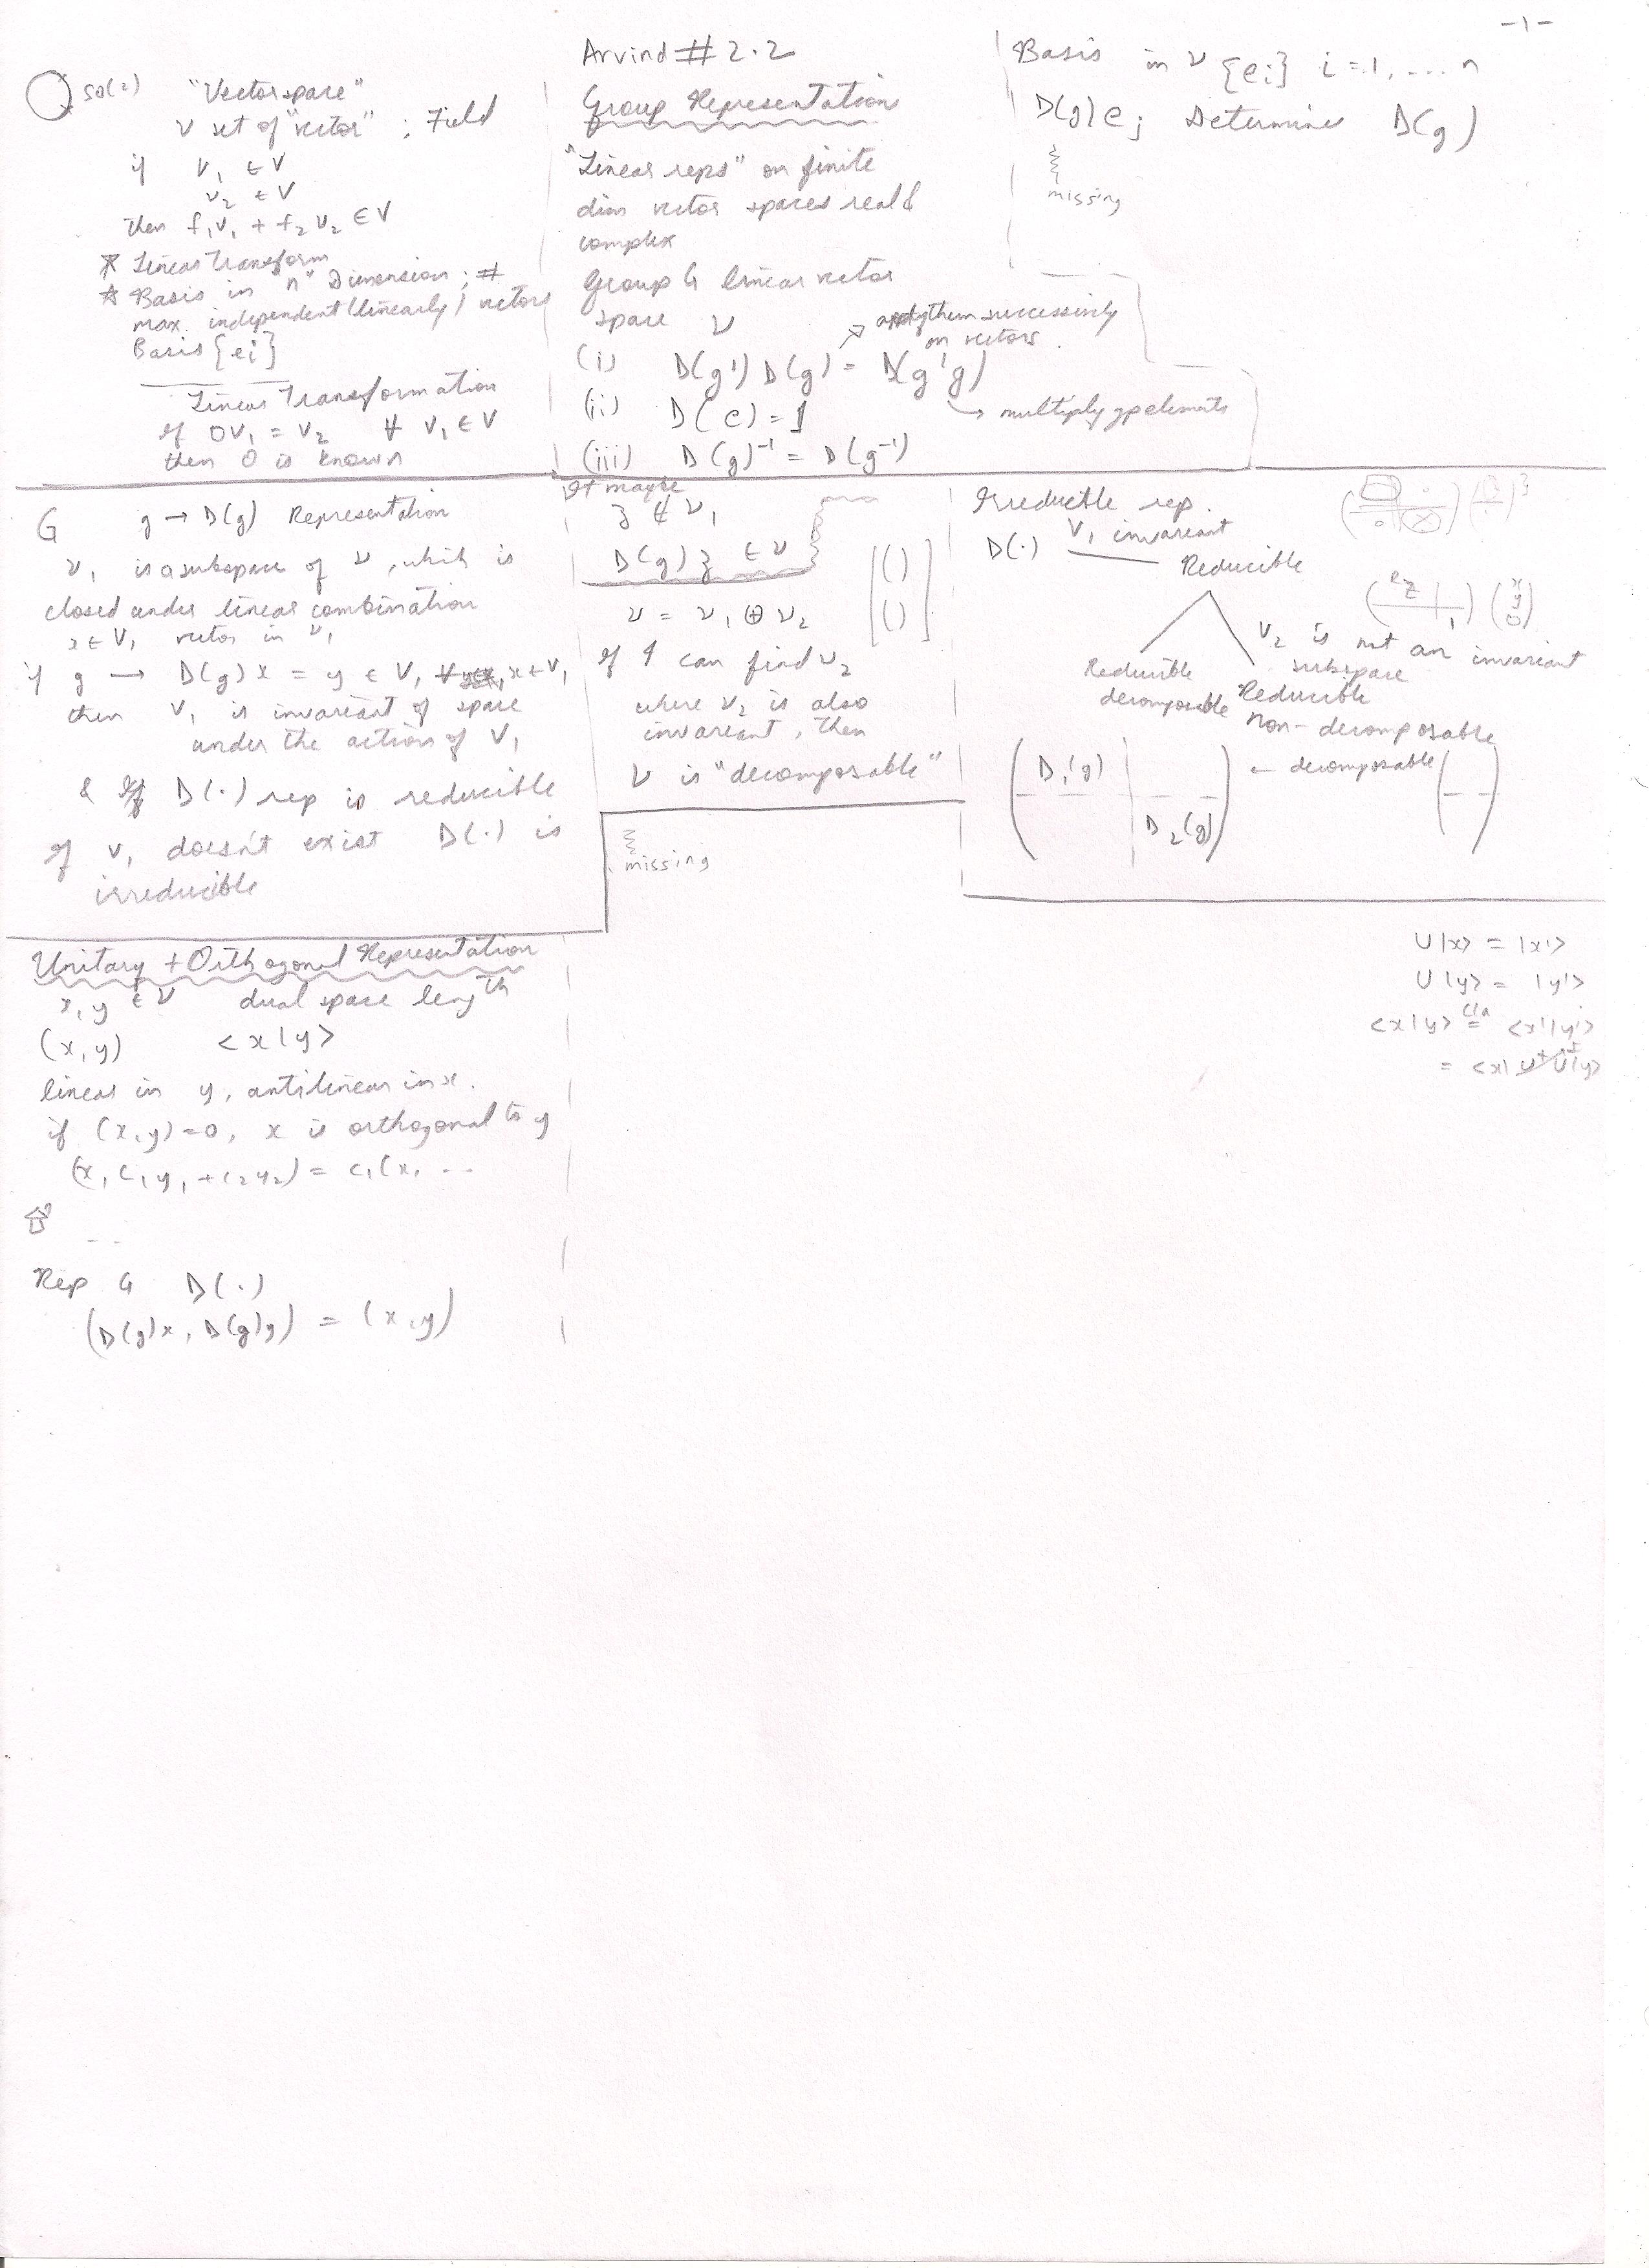 -1-
SO(2)
"Vectorspace"
V set of "vector" ; Field
if V₁ ∈ V
V₂ ∈ V
then f₁V₁ + f₂V₂ ∈ V
* Linear Transform
* Basis in "n" Dimension ; #
max. independent (linearly) vectors
Basis {eᵢ}
Linear Transformation
If OV₁ = V₂ ∀ V₁ ∈ V
then O is known
Arvind # 2.2
Group Representation
"Linear reps" on finite
dim vector spaces real &
complex
Group G linear vector
space V
→ apply them successively
on vectors.
(i) D(g')D(g) = D(g'g)
→ multiply gp elements
(ii) D(e) = 1
(iii) D(g)⁻¹ = D(g⁻¹)
Basis in V {eᵢ} i = 1, .... n
D(g)eⱼ Determines D(g)
missing
G g → D(g) Representation
V₁ is a subspace of V, which is
closed under linear combination
x ∈ V₁ vector in V₁
if g → D(g)x = y ∈ V₁ ∀ x ∈ V₁
then V₁ is invariant of space
under the action of V₁
& D(.) rep is reducible
If V₁ doesn't exist D(.) is
irreducible
It maybe
z ∉ V₁
D(g)z ∈ V
V = V₁ ⊕ V₂
[( )
( )]
If I can find V₂
where V₂ is also
invariant, then
V is "decomposable"
missing
Irreducible rep.
D(.) V₁ invariant
Reducible
(RZ | 1) (x y 0)
V₂ is not an invariant
subspace
Reducible
decomposable
Reducible
non-decomposable
(D₁(g)
D₂(g))
← decomposable
Unitary + Orthogonal Representation
x, y ∈ V dual space length
(x, y) <x|y>
linear in y, antilinear in x.
if (x,y)=0, x is orthogonal to y
(x, c₁y₁ + c₂y₂) = c₁(x, ...
Rep G D(.)
(D(g)x, D(g)y) = (x,y)
U|x> = |x'>
U|y> = |y'>
<x|y> = <x'|y'>
= <x|U†U|y>